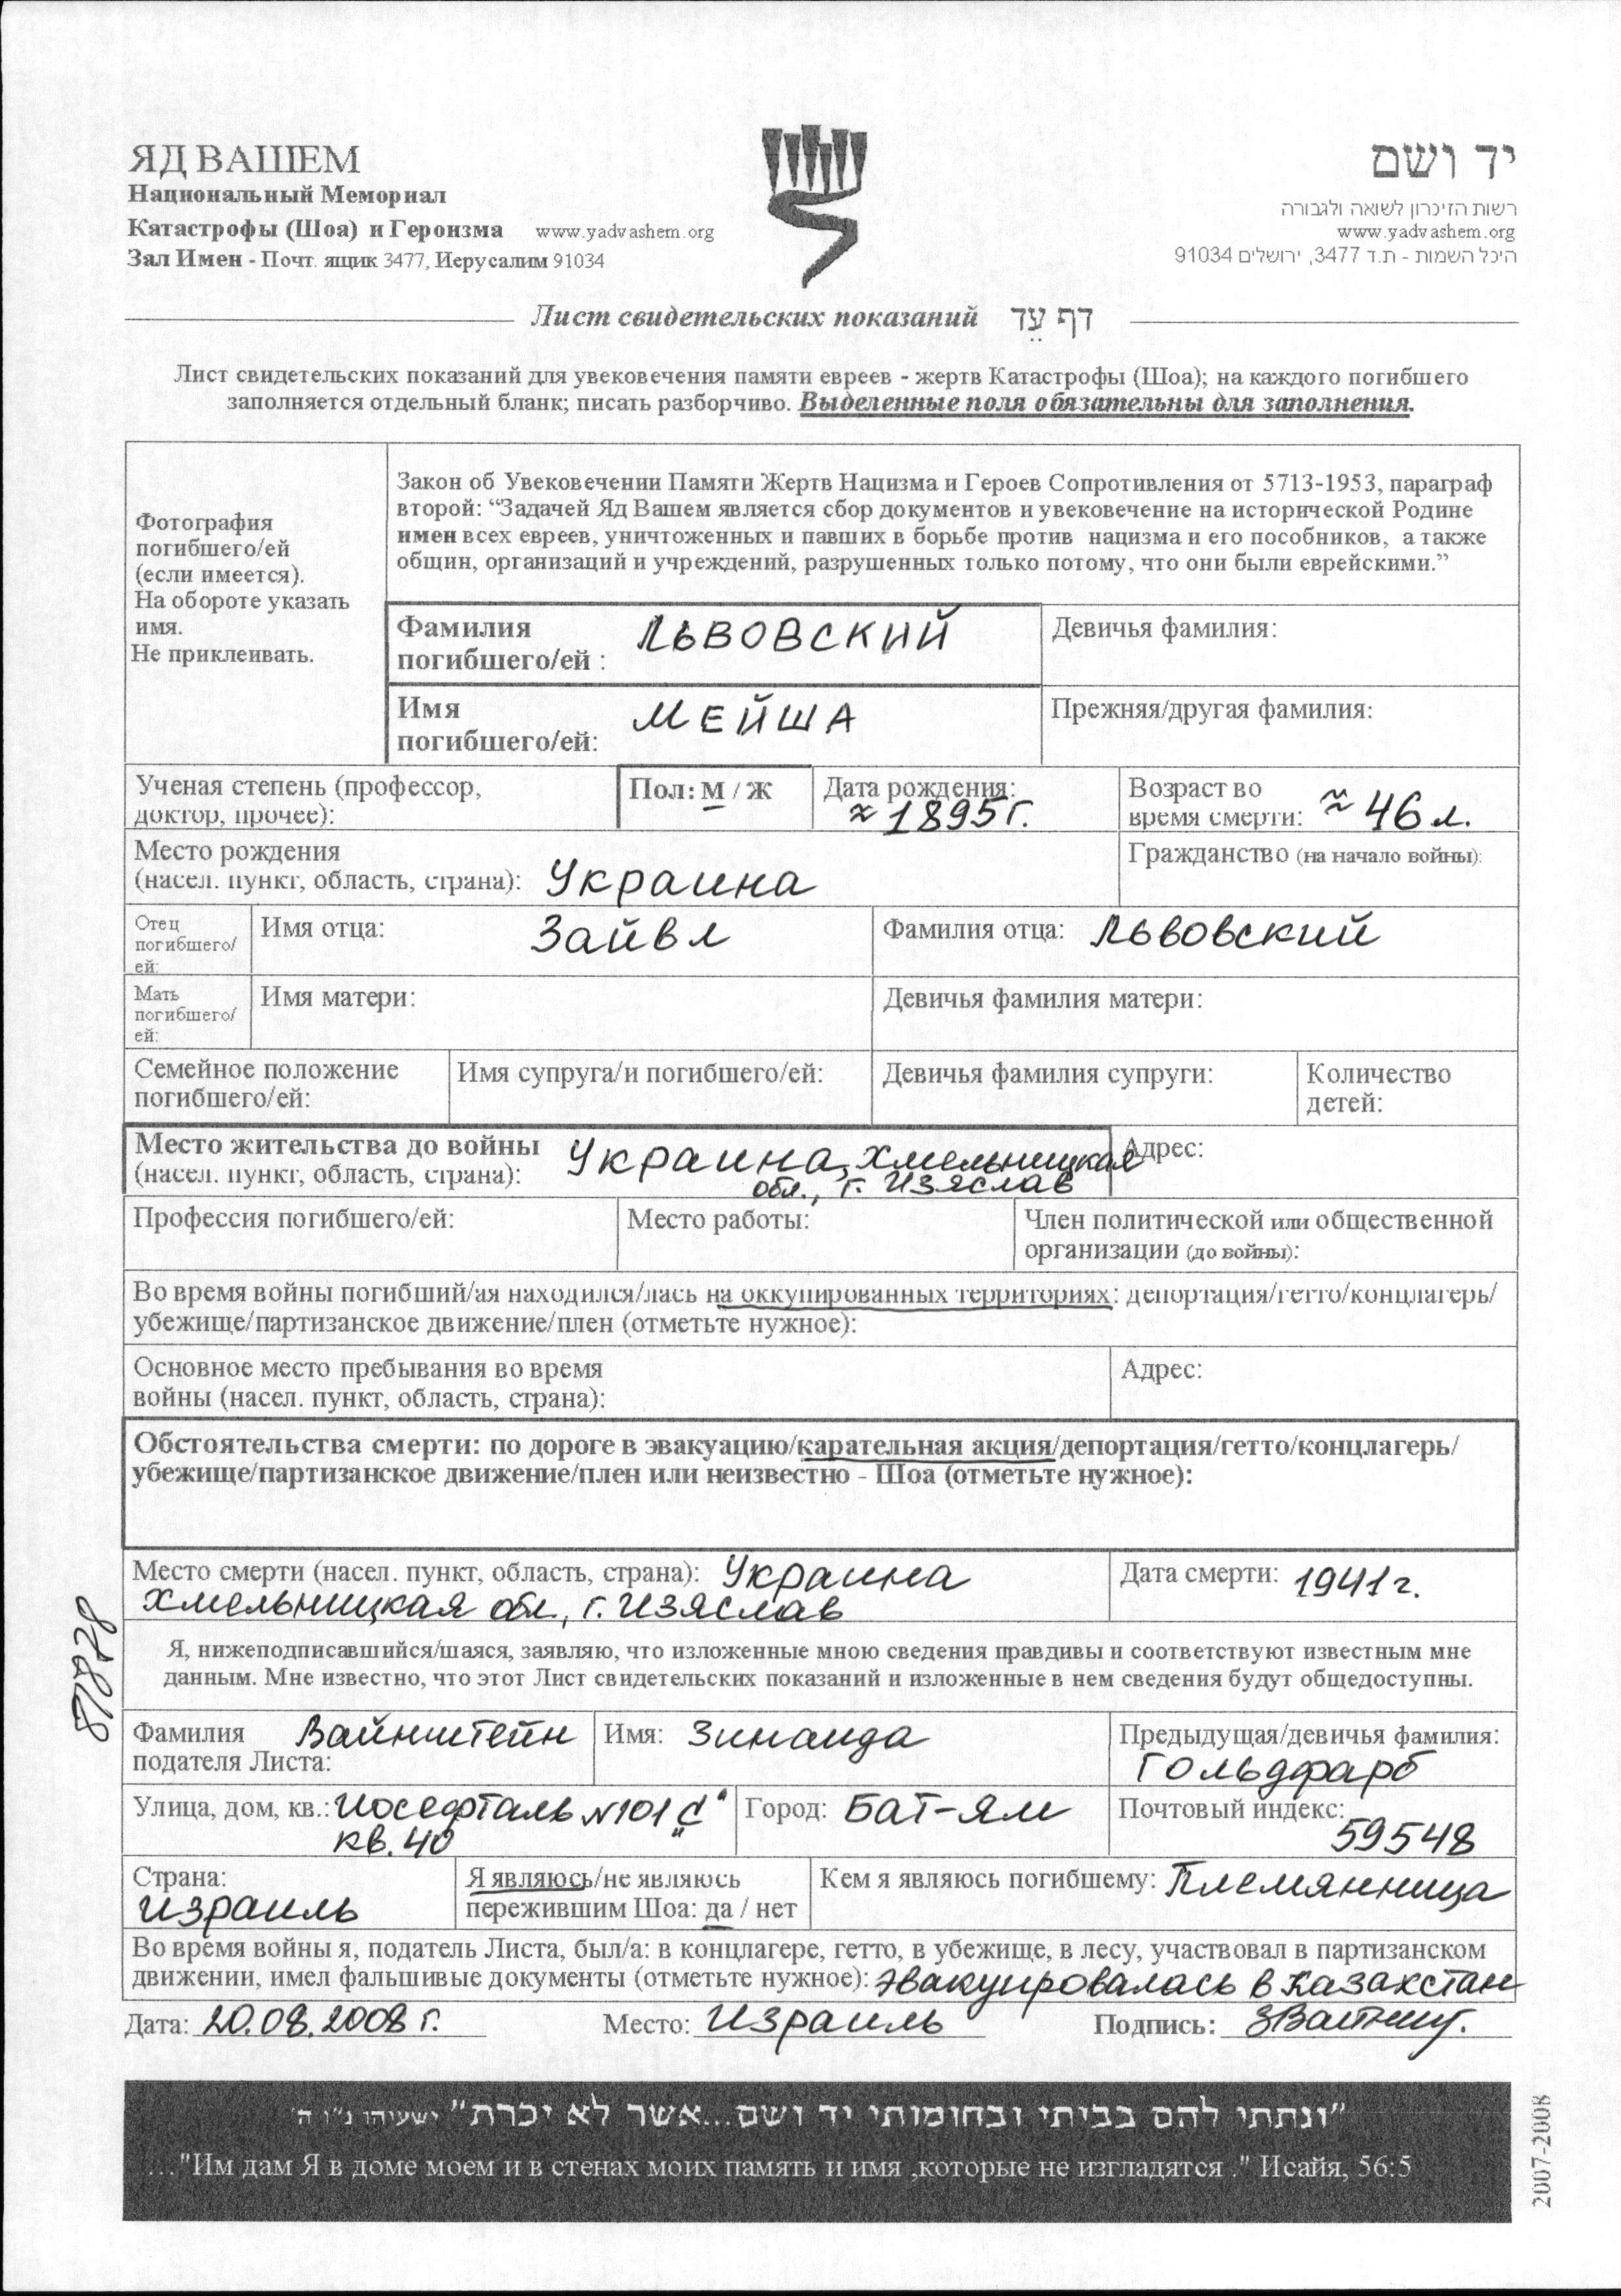 ЯД ВАШЕМ
Национальный Мемориал
Катастрофы (Шоа) и Героизма www.yadvashem.org
Зал Имен - Почт. ящик 3477, Иерусалим 91034
יד ושם
רשות הזיכרון לשואה ולגבורה
www.yadvashem.org
היכל השמות - ת.ד 3477, ירושלים 91034
Лист свидетельских показаний דף עֵד
Лист свидетельских показаний для увековечения памяти евреев - жертв Катастрофы (Шоа); на каждого погибшего
заполняется отдельный бланк; писать разборчиво. Выделенные поля обязательны для заполнения.
Фотография
погибшего/ей
(если имеется).
На обороте указать
имя.
Не приклеивать.
Закон об Увековечении Памяти Жертв Нацизма и Героев Сопротивления от 5713-1953, параграф
второй: “Задачей Яд Вашем является сбор документов и увековечение на исторической Родине
имен всех евреев, уничтоженных и павших в борьбе против нацизма и его пособников, а также
общин, организаций и учреждений, разрушенных только потому, что они были еврейскими.”
Фамилия
погибшего/ей : ЛЬВОВСКИЙ
Девичья фамилия:
Имя
погибшего/ей: МЕЙША
Прежняя/другая фамилия:
Ученая степень (профессор,
доктор, прочее):
Пол: М / Ж
Дата рождения:
≈ 1895г.
Возраст во
время смерти: ≈ 46 л.
Место рождения
(насел. пункт, область, страна): Украина
Гражданство (на начало войны):
Отец
погибшего/
ей:
Имя отца: Зайвл
Фамилия отца: Львовский
Мать
погибшего/
ей:
Имя матери:
Девичья фамилия матери:
Семейное положение
погибшего/ей:
Имя супруга/и погибшего/ей:
Девичья фамилия супруги:
Количество
детей:
Место жительства до войны
(насел. пункт, область, страна): Украина, Хмельницкая
обл., г. Изяслав
Адрес:
Профессия погибшего/ей:
Место работы:
Член политической или общественной
организации (до войны):
Во время войны погибший/ая находился/лась на оккупированных территориях: депортация/гетто/концлагерь/
убежище/партизанское движение/плен (отметьте нужное):
Основное место пребывания во время
войны (насел. пункт, область, страна):
Адрес:
Обстоятельства смерти: по дороге в эвакуацию/карательная акция/депортация/гетто/концлагерь/
убежище/партизанское движение/плен или неизвестно - Шоа (отметьте нужное):
Место смерти (насел. пункт, область, страна): Украина
Хмельницкая обл., г. Изяслав
Дата смерти: 1941г.
Я, нижеподписавшийся/шаяся, заявляю, что изложенные мною сведения правдивы и соответствуют известным мне
данным. Мне известно, что этот Лист свидетельских показаний и изложенные в нем сведения будут общедоступны.
Фамилия
подателя Листа: Вайнштейн
Имя: Зинаида
Предыдущая/девичья фамилия:
Гольдфарб
Улица, дом, кв.: Иосефталь №101 „С"
кв. 40
Город: БАТ-ЯМ
Почтовый индекс:
59548
Страна:
Израиль
Я являюсь/не являюсь
пережившим Шоа: да / нет
Кем я являюсь погибшему: Племянница
Во время войны я, податель Листа, был/а: в концлагере, гетто, в убежище, в лесу, участвовал в партизанском
движении, имел фальшивые документы (отметьте нужное): эвакуировалась в Казахстан
Дата: 20.08.2008 г. Место: Израиль Подпись:
"ונתתי להם בביתי ובחומותי יד ושם...אשר לא יכרת" ישעיהו נ"ו ה'
..."Им дам Я в доме моем и в стенах моих память и имя ,которые не изгладятся ." Исайя, 56:5
2007-2008